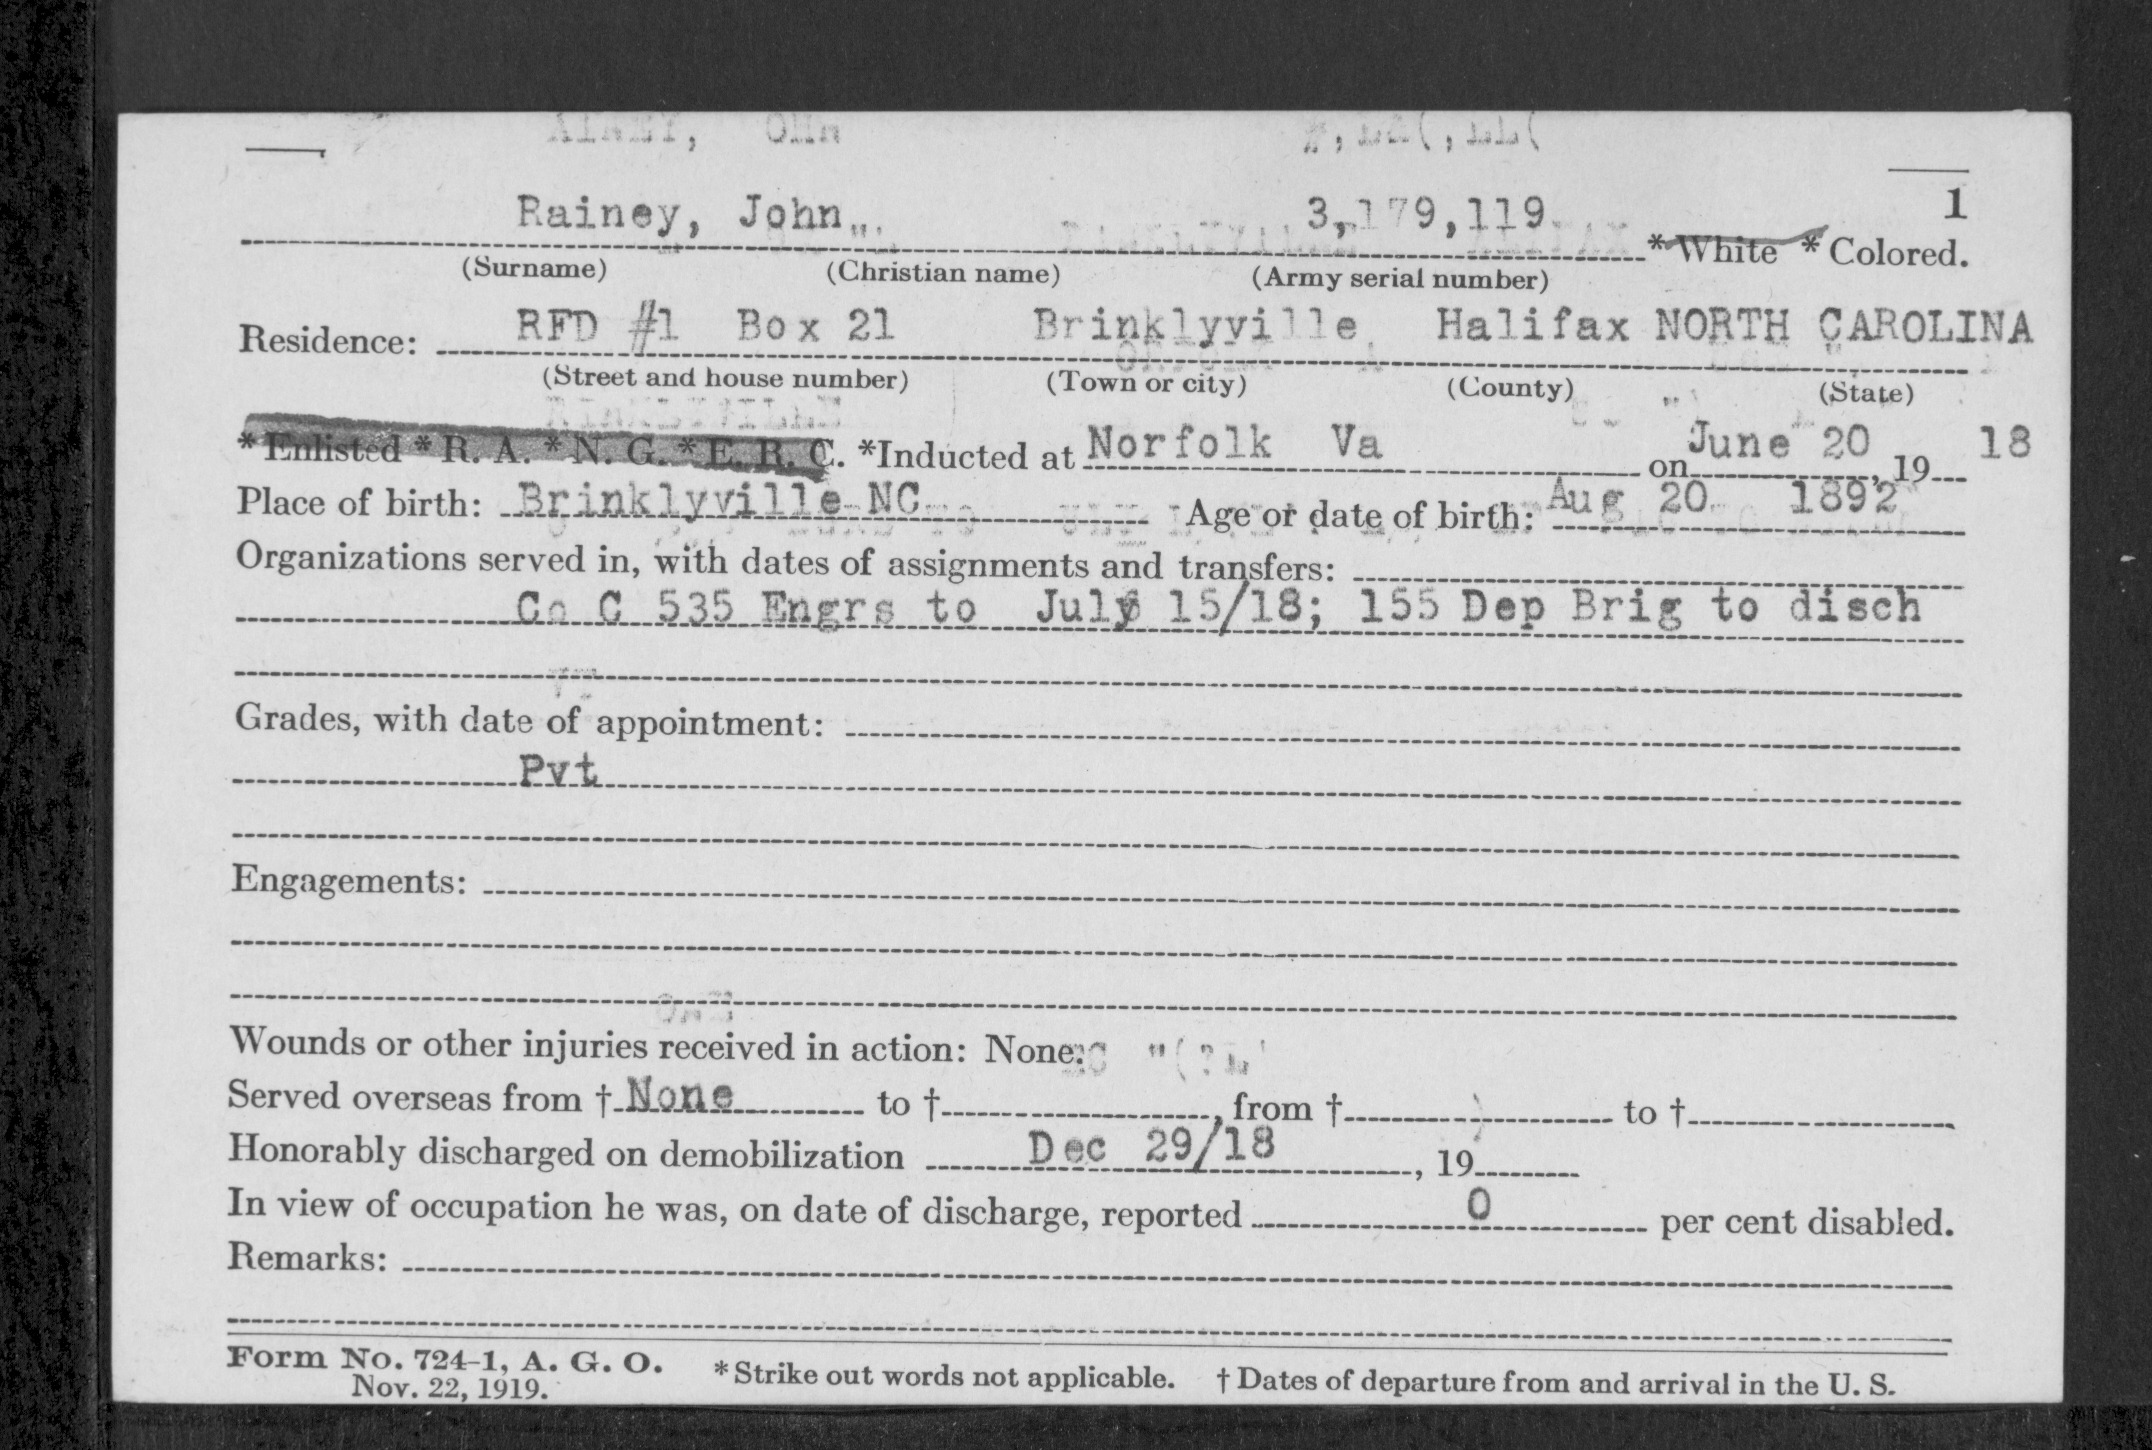 1
Rainey, John 3,179,119 *White *Colored.
(Surname) (Christian name) (Army serial number)
Residence: RFD #1 Box 21 Brinklyville Halifax NORTH CAROLINA
(Street and house number) (Town or city) (County) (State)
*Enlisted *R. A. *N. G. *E. R. C. *Inducted at Norfolk Va on June 20, 19 18
Place of birth: Brinklyville NC Age or date of birth: Aug 20 1892
Organizations served in, with dates of assignments and transfers:
Co C 535 Engrs to July 15/18; 155 Dep Brig to disch
Grades, with date of appointment:
Pvt
Engagements:
Wounds or other injuries received in action: None.
Served overseas from † None to †, from † to †
Honorably discharged on demobilization Dec 29/18, 19
In view of occupation he was, on date of discharge, reported 0 per cent disabled.
Remarks:
Form No. 724-1, A. G. O. *Strike out words not applicable. † Dates of departure from and arrival in the U. S.
Nov. 22, 1919.